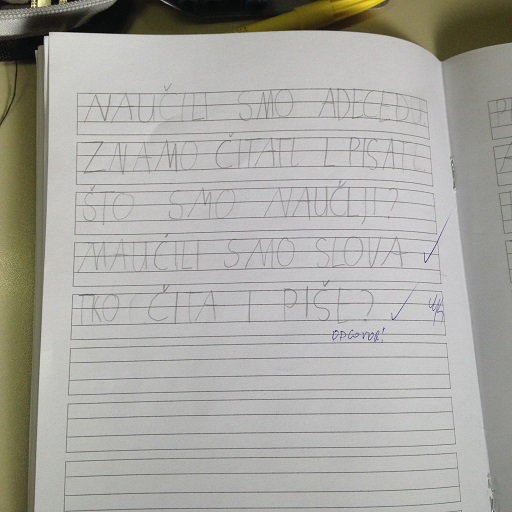 NAUČILI SMO ADECEDU
ZNAMO ČITATI I PISATI
ŠTO SMO NAUČILI?
NAUČILI SMO SLOVA
TKO ČITA I PIŠE?
ODGOVORI!